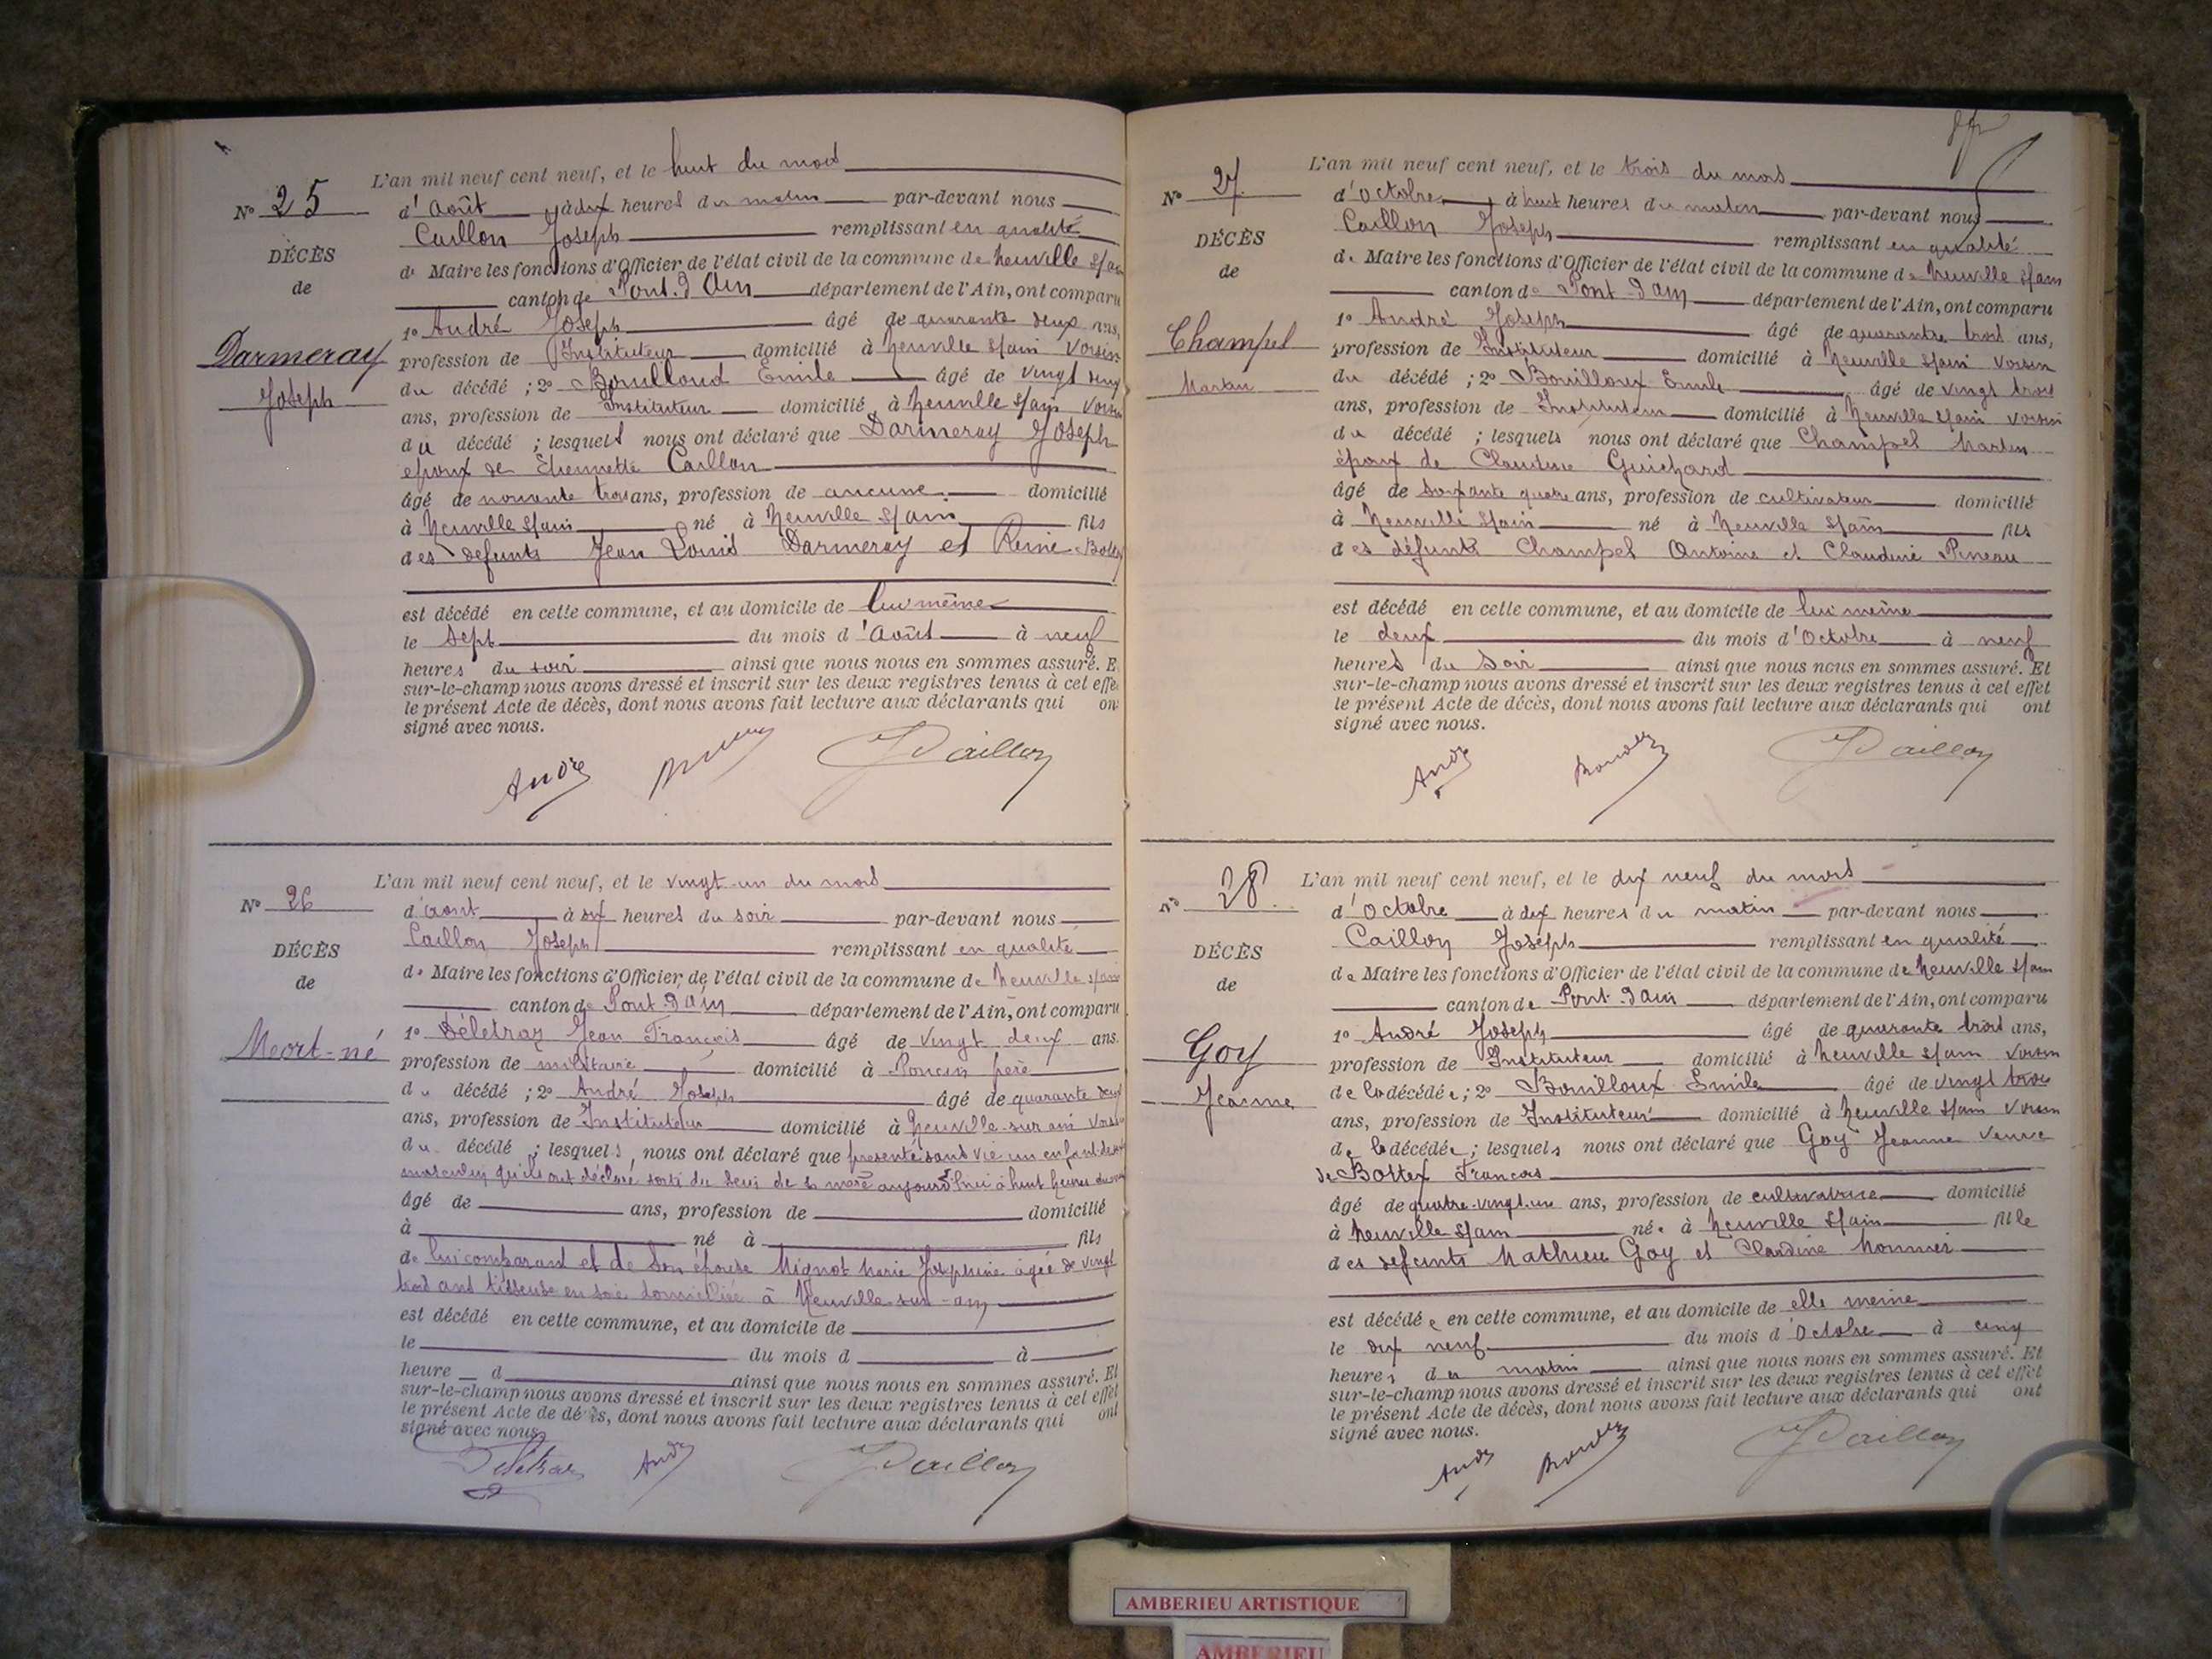 L'an mil neuf cent neuf, et le huit du mois
N° 25
d'Août à dix heures du matin par-devant nous
Caillon Joseph remplissant en qualité
DÉCÈS
de Maire les fonctions d'Officier de l'état civil de la commune de Neuville s/ain
de
canton de Pont-d'Ain département de l'Ain, ont comparu
1° André Joseph âgé de quarante deux ans,
Darmeray
profession de Instituteur domicilié à Neuville s/ain voisin
du décédé ; 2° Bouilloud Emile âgé de vingt deux
Joseph
ans, profession de Instituteur domicilié à Neuville s/ain voisin
du décédé ; lesquels nous ont déclaré que Darmeray Joseph
époux de Etiennette Caillon
âgé de nonante trois ans, profession de aucune domicilié
à Neuville s/ain né à Neuville s/ain fils
des défunts Jean Louis Darmeray et Reine
est décédé en cette commune, et au domicile de lui même
le sept du mois d'Août à neuf
heures du soir ainsi que nous nous en sommes assuré. E
sur-le-champ nous avons dressé et inscrit sur les deux registres tenus à cet effe
le présent Acte de décès, dont nous avons fait lecture aux déclarants qui on
signé avec nous.
André JCaillon
L'an mil neuf cent neuf, et le vingt-un du mois
N° 26
d'août à six heures du soir par-devant nous
Caillon Joseph remplissant en qualité
DÉCÈS
de Maire les fonctions d'Officier de l'état civil de la commune de Neuville s/ain
de
canton de Pont-d'Ain département de l'Ain, ont comparu
1° Déletraz Jean François âgé de vingt deux ans.
Mort-né
profession de militaire domicilié à Poncin père
du décédé ; 2° André Joseph âgé de quarante deux
ans, profession de Instituteur domicilié à Neuville-sur-ain voisin
du décédé ; lesquels nous ont déclaré que présenté sans vie un enfant de sexe
masculin qu'ils ont déclaré sorti du sein de sa mère aujourd'hui à huit heures du
âgé de ans, profession de domicilié
à né à fils
de lui comparant et de son épouse Mignot Marie Joséphine âgée de vingt
trois ans tisseuse en soie domiciliée à Neuville-sur-ain
est décédé en cette commune, et au domicile de
le du mois d à
heure d ainsi que nous nous en sommes assuré. Et
sur-le-champ nous avons dressé et inscrit sur les deux registres tenus à cet effet
le présent Acte de décès, dont nous avons fait lecture aux déclarants qui ont
signé avec nous.
Deletraz André JCaillon
L'an mil neuf cent neuf, et le trois du mois
N° 27
d'Octobre à huit heures du matin par-devant nous
Caillon Joseph remplissant en qualité
DÉCÈS
de Maire les fonctions d'Officier de l'état civil de la commune de Neuville s/ain
de
canton de Pont-d'ain département de l'Ain, ont comparu
1° André Joseph âgé de quarante trois ans,
Champel
profession de Instituteur domicilié à Neuville s/ain voisin
du décédé ; 2° Bouilloux Emile âgé de vingt trois
Martin
ans, profession de Instituteur domicilié à Neuville s/ain voisin
du décédé ; lesquels nous ont déclaré que Champel Martin
époux de Claudine Guichard
âgé de soixante quatre ans, profession de cultivateur domicilié
à Neuville s/ain né à Neuville s/ain fils
des défunts Champel Antoine et Claudine Pineau
est décédé en cette commune, et au domicile de lui même
le deux du mois d'Octobre à neuf
heures du soir ainsi que nous nous en sommes assuré. Et
sur-le-champ nous avons dressé et inscrit sur les deux registres tenus à cet effet
le présent Acte de décès, dont nous avons fait lecture aux déclarants qui ont
signé avec nous.
André JCaillon
L'an mil neuf cent neuf, et le dix neuf du mois
N° 28
d'Octobre à dix heures du matin par-devant nous
Caillon Joseph remplissant en qualité
DÉCÈS
de Maire les fonctions d'Officier de l'état civil de la commune de Neuville s/ain
de
canton de Pont-d'ain département de l'Ain, ont comparu
1° André Joseph âgé de quarante trois ans,
Goy
profession de Instituteur domicilié à Neuville s/ain voisin
de la décédée ; 2° Bouilloux Emile âgé de vingt trois
Jeanne
ans, profession de Instituteur domicilié à Neuville s/ain voisin
de la décédée ; lesquels nous ont déclaré que Goy Jeanne veuve
de Bottex François
âgé de quatre-vingt-un ans, profession de cultivatrice domicilié
à Neuville s/ain née à Neuville s/ain fille
des défunts Mathieu Goy et Claudine Monnier
est décédée en cette commune, et au domicile de elle même
le dix neuf du mois d'Octobre à cinq
heures du matin ainsi que nous nous en sommes assuré. Et
sur-le-champ nous avons dressé et inscrit sur les deux registres tenus à cet effet
le présent Acte de décès, dont nous avons fait lecture aux déclarants qui ont
signé avec nous.
André JCaillon
AMBERIEU ARTISTIQUE
AMBERIEU